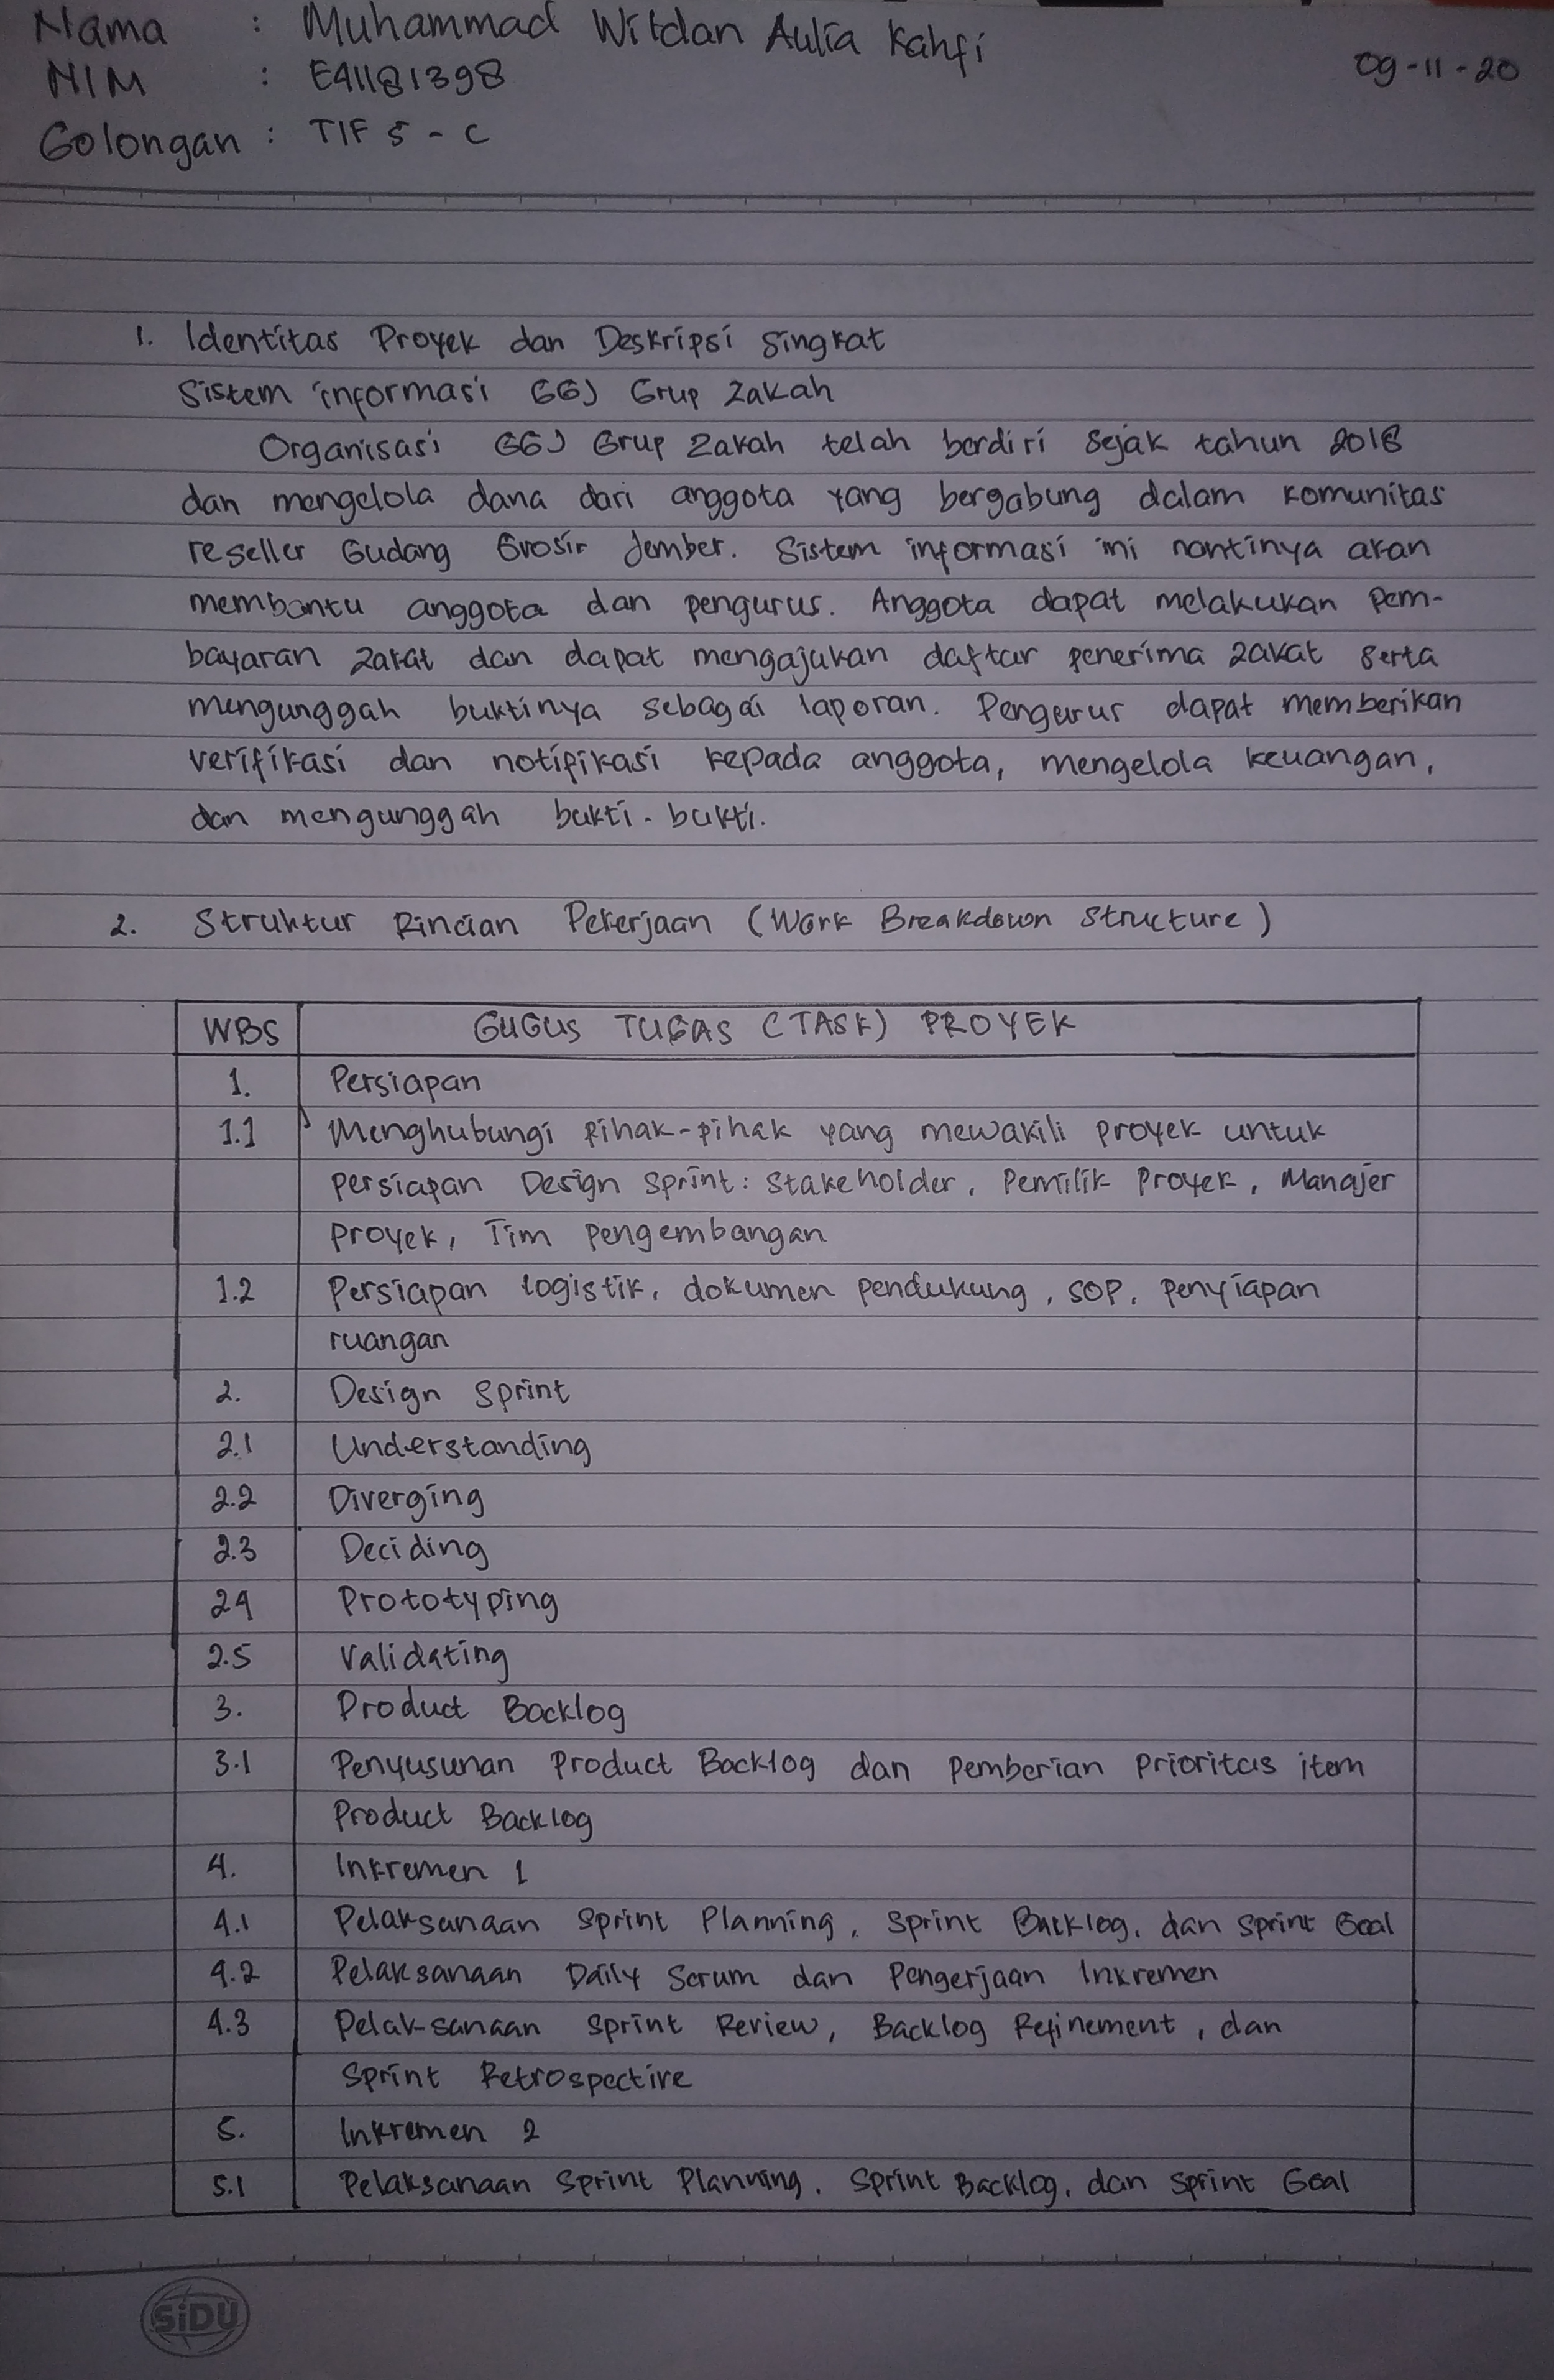 Nama : Muhammad Wildan Aulia Kahfi
NIM : E41181398
09-11-20
Golongan : TIF 5 - C
1. Identitas Proyek dan Deskripsi Singkat
Sistem informasi GGJ Grup Zakah
Organisasi GGJ Grup Zakah telah berdiri sejak tahun 2018
dan mengelola dana dari anggota yang bergabung dalam komunitas
reseller Gudang Grosir Jember. Sistem informasi ini nantinya akan
membantu anggota dan pengurus. Anggota dapat melakukan pem-
bayaran zakat dan dapat mengajukan daftar penerima zakat serta
mengunggah buktinya sebagai laporan. Pengurus dapat memberikan
verifikasi dan notifikasi kepada anggota, mengelola keuangan,
dan mengunggah bukti-bukti.
2. Struktur Rincian Pekerjaan (Work Breakdown Structure)
WBS GUGUS TUGAS (TASK) PROYEK
1. Persiapan
1.1 Menghubungi pihak-pihak yang mewakili proyek untuk
persiapan Design Sprint: Stakeholder, Pemilik Proyek, Manajer
Proyek, Tim pengembangan
1.2 Persiapan logistik, dokumen pendukung, SOP, penyiapan
ruangan
2. Design Sprint
2.1 Understanding
2.2 Diverging
2.3 Deciding
2.4 Prototyping
2.5 Validating
3. Product Backlog
3.1 Penyusunan Product Backlog dan Pemberian Prioritas item
Product Backlog
4. Inkremen 1
4.1 Pelaksanaan Sprint Planning, Sprint Backlog, dan Sprint Goal
4.2 Pelaksanaan Daily Scrum dan Pengerjaan Inkremen
4.3 Pelaksanaan Sprint Review, Backlog Refinement, dan
Sprint Retrospective
5. Inkremen 2
5.1 Pelaksanaan Sprint Planning, Sprint Backlog, dan Sprint Goal
SiDU